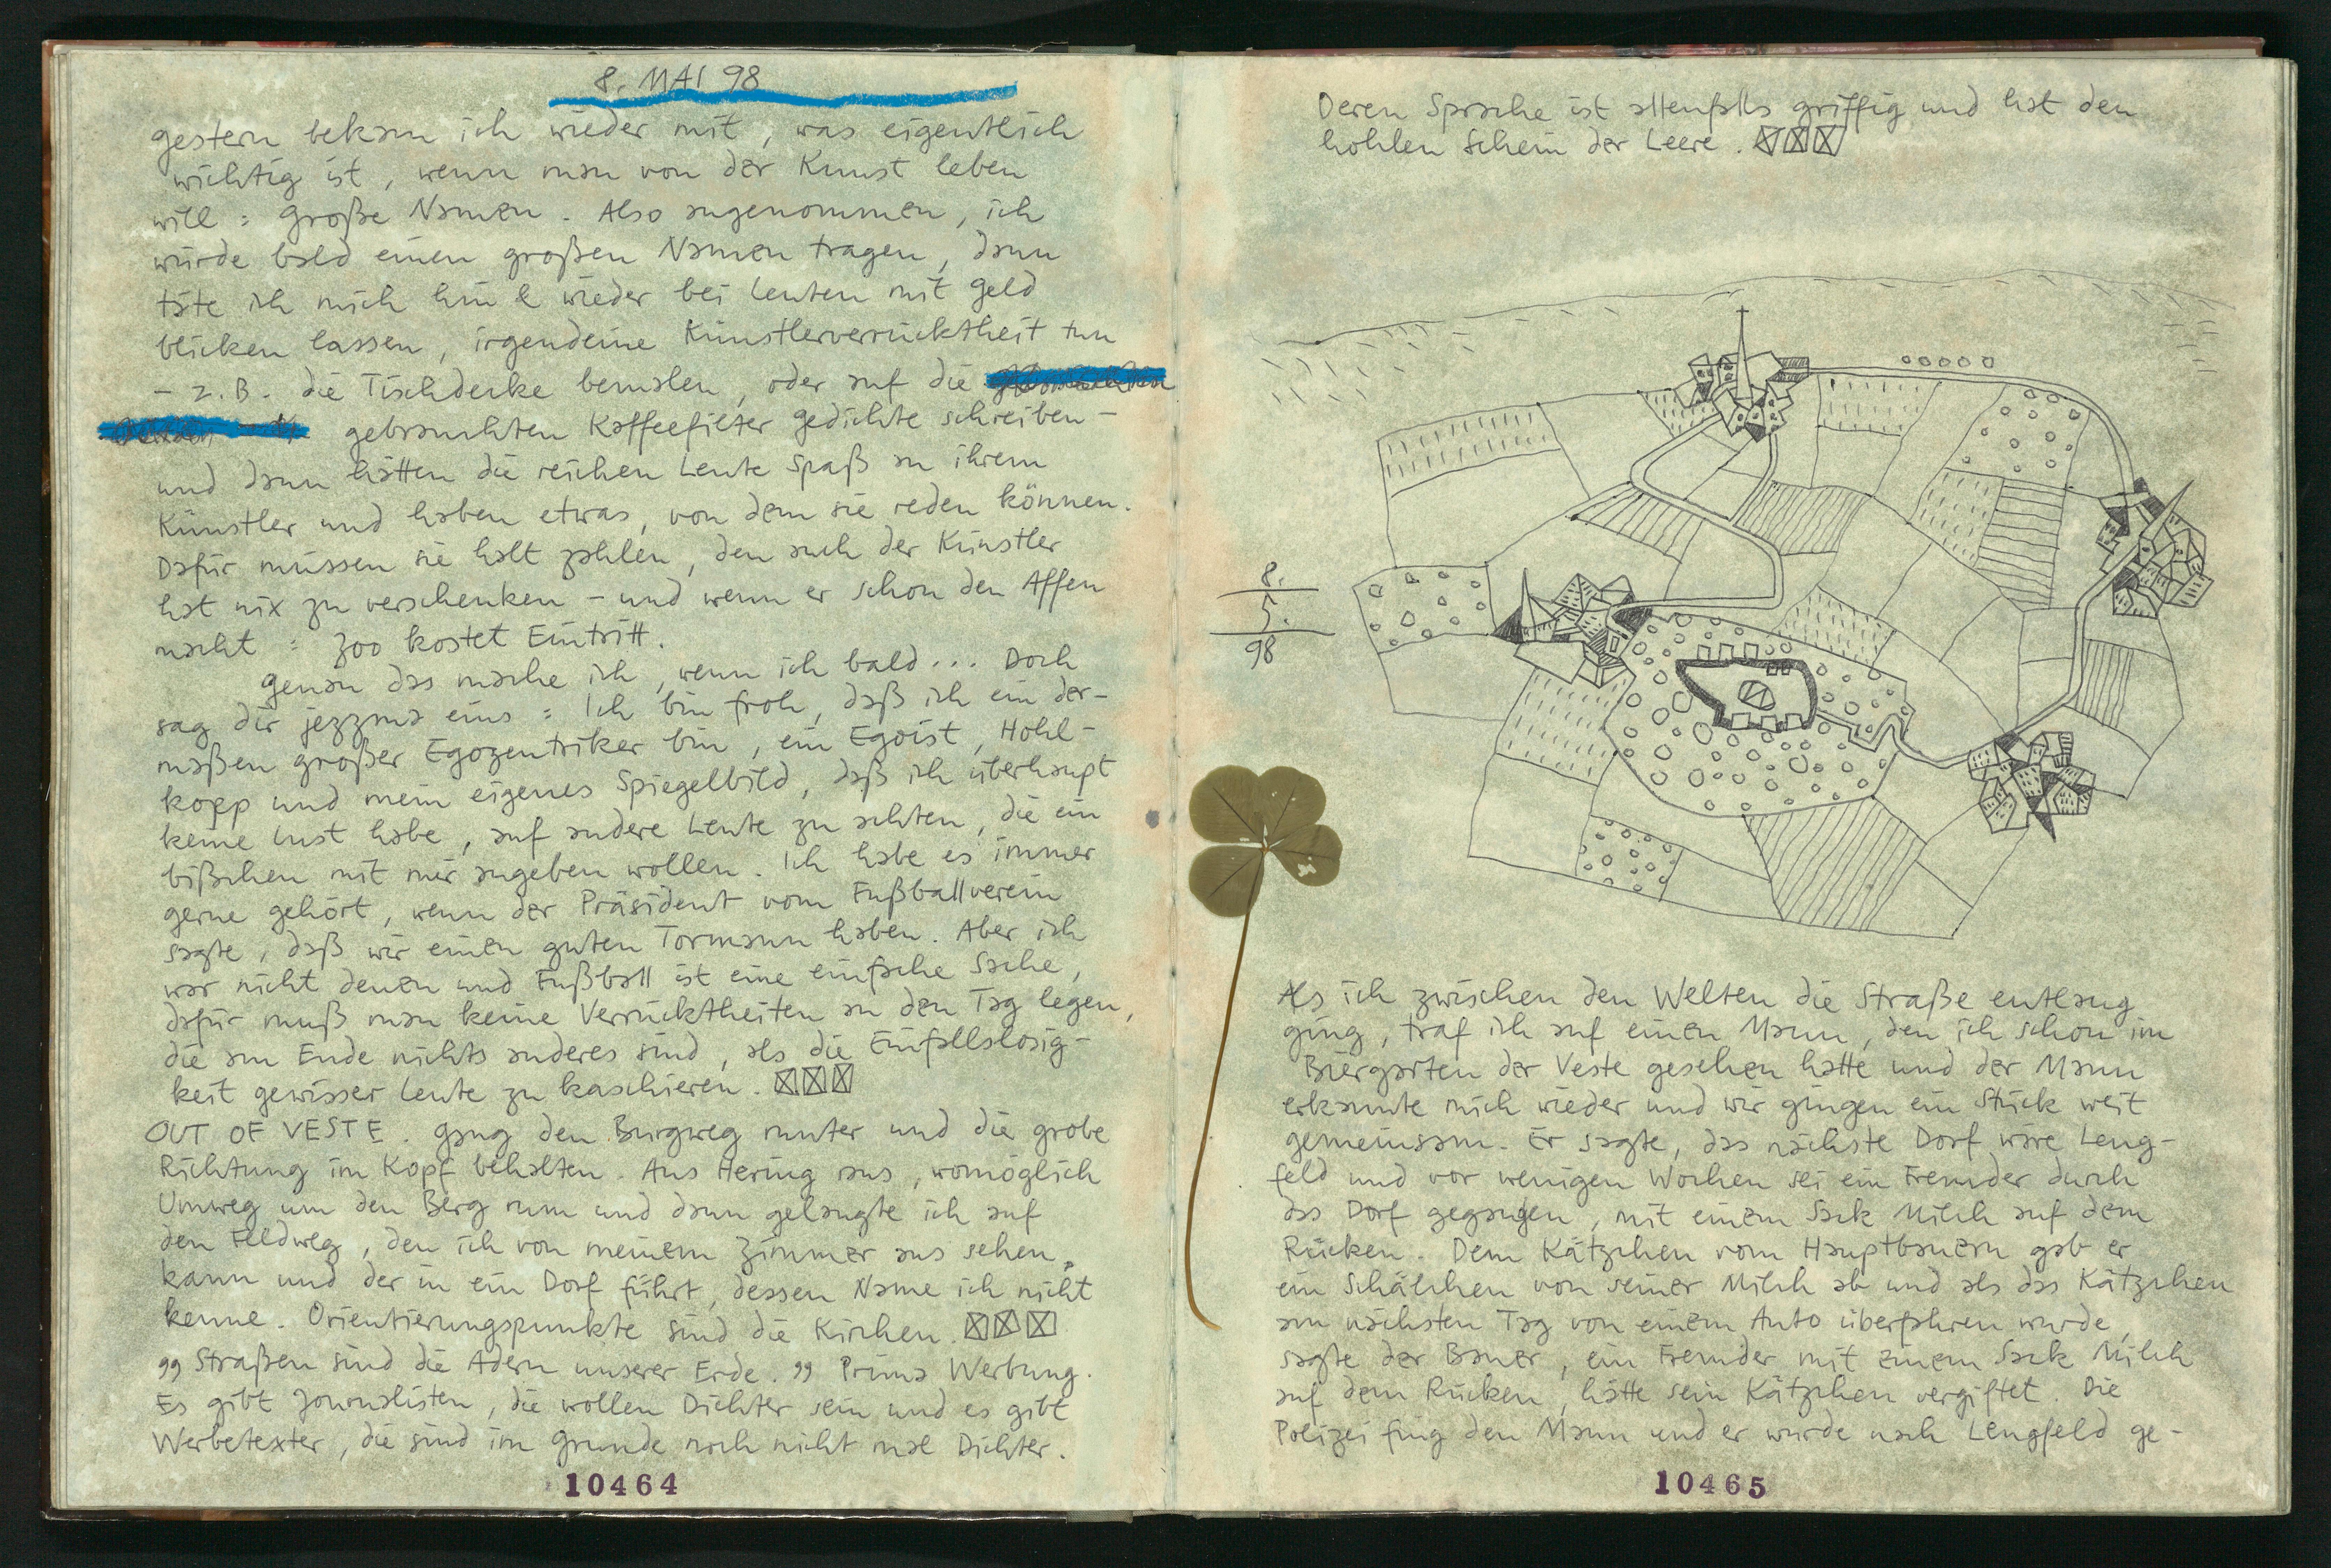 8. MAI 98
gestern bekam ich wieder mit, was eigentlich
wichtig ist, wenn man von der Kunst leben
will : große Namen. Also angenommen, ich
würde bald einen großen Namen tragen, dann
täte ich mich hin & wieder bei Leuten mit Geld
blicken lassen, irgendeine Künstlerverrücktheit tun
– z.B. die Tischdecke bemalen, oder auf die
gebrauchten Kaffeefilter Gedichte schreiben –
und dann hätten die reichen Leute Spaß an ihrem
Künstler und haben etwas, von dem sie reden können.
Dafür müssen sie halt zahlen, den auch der Künstler
hat nix zu verschenken – und wenn er schon den Affen
macht : Zoo kostet Eintritt.
Genau das mache ich, wenn ich bald... Doch
sag dir jezzma eins : Ich bin froh, daß ich ein der-
maßen großer Egozentriker bin, ein Egoist, Hohl-
kopp und mein eigenes Spiegelbild, daß ich überhaupt
keine Lust habe, auf andere Leute zu achten, die ein
bißchen mit mir angeben wollen. Ich habe es immer
gerne gehört, wenn der Präsident vom Fußballverein
sagte, daß wir einen guten Tormann haben. Aber ich
war nicht denen und Fußball ist eine einfache Sache,
dafür muß man keine Verrücktheiten an den Tag legen,
die am Ende nichts anderes sind, als die Einfallslosig-
keit gewisser Leute zu kaschieren. ☒☒☒
OUT OF VESTE. Gang den Burgweg runter und die grobe
Richtung im Kopf behalten. Aus Hering raus, womöglich
Umweg um den Berg rum und dann gelangte ich auf
den Feldweg, den ich von meinem Zimmer aus sehen
kann und der in ein Dorf führt, dessen Name ich nicht
kenne. Orientierungspunkte sind die Kirchen. ☒☒☒
„Straßen sind die Adern unserer Erde.„ Prima Werbung.
Es gibt Journalisten, die wollen Dichter sein und es gibt
Werbetexter, die sind im Grunde noch nicht mal Dichter.
10464
Deren Sprache ist allenfalls griffig und hat den
hohlen Schein der Leere. ☒☒☒
8.
5.
98
Als ich zwischen den Welten die Straße entlang
ging, traf ich auf einen Mann, den ich schon im
Biergarten der Veste gesehen hatte und der Mann
erkannte mich wieder und wir gingen ein Stück weit
gemeinsam. Er sagte, das nächste Dorf wäre Leng-
feld und vor wenigen Wochen sei ein Fremder durch
das Dorf gegangen, mit einem Sack Milch auf dem
Rücken. Dem Kätzchen vom Hauptbauern gab er
ein Schälchen von seiner Milch ab und als das Kätzchen
am nächsten Tag von einem Auto überfahren wurde,
sagte der Bauer, ein Fremder mit einem Sack Milch
auf dem Rücken, hätte sein Kätzchen vergiftet. Die
Polizei fing den Mann und er wurde nach Lengfeld ge-
10465